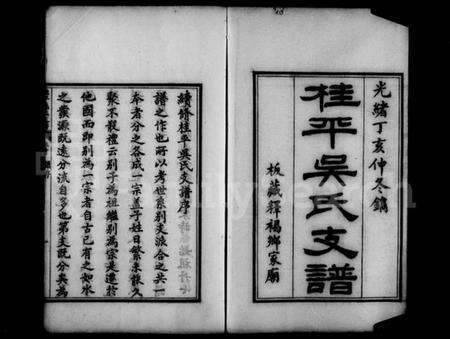 光緒丁亥仲冬鐫
桂平吳氏支譜
板藏釋褐鄉家廟
續脩桂平吳氏支譜序
譜之作也所以考世系別支派合之共一
本者分之各成一宗蓋子姓日繁未能久
聚不散禮云別子為祖繼別為宗是遷於
他國而即別為一宗者自古已有之如水
之發源既遠分流自多也第支既分矣為